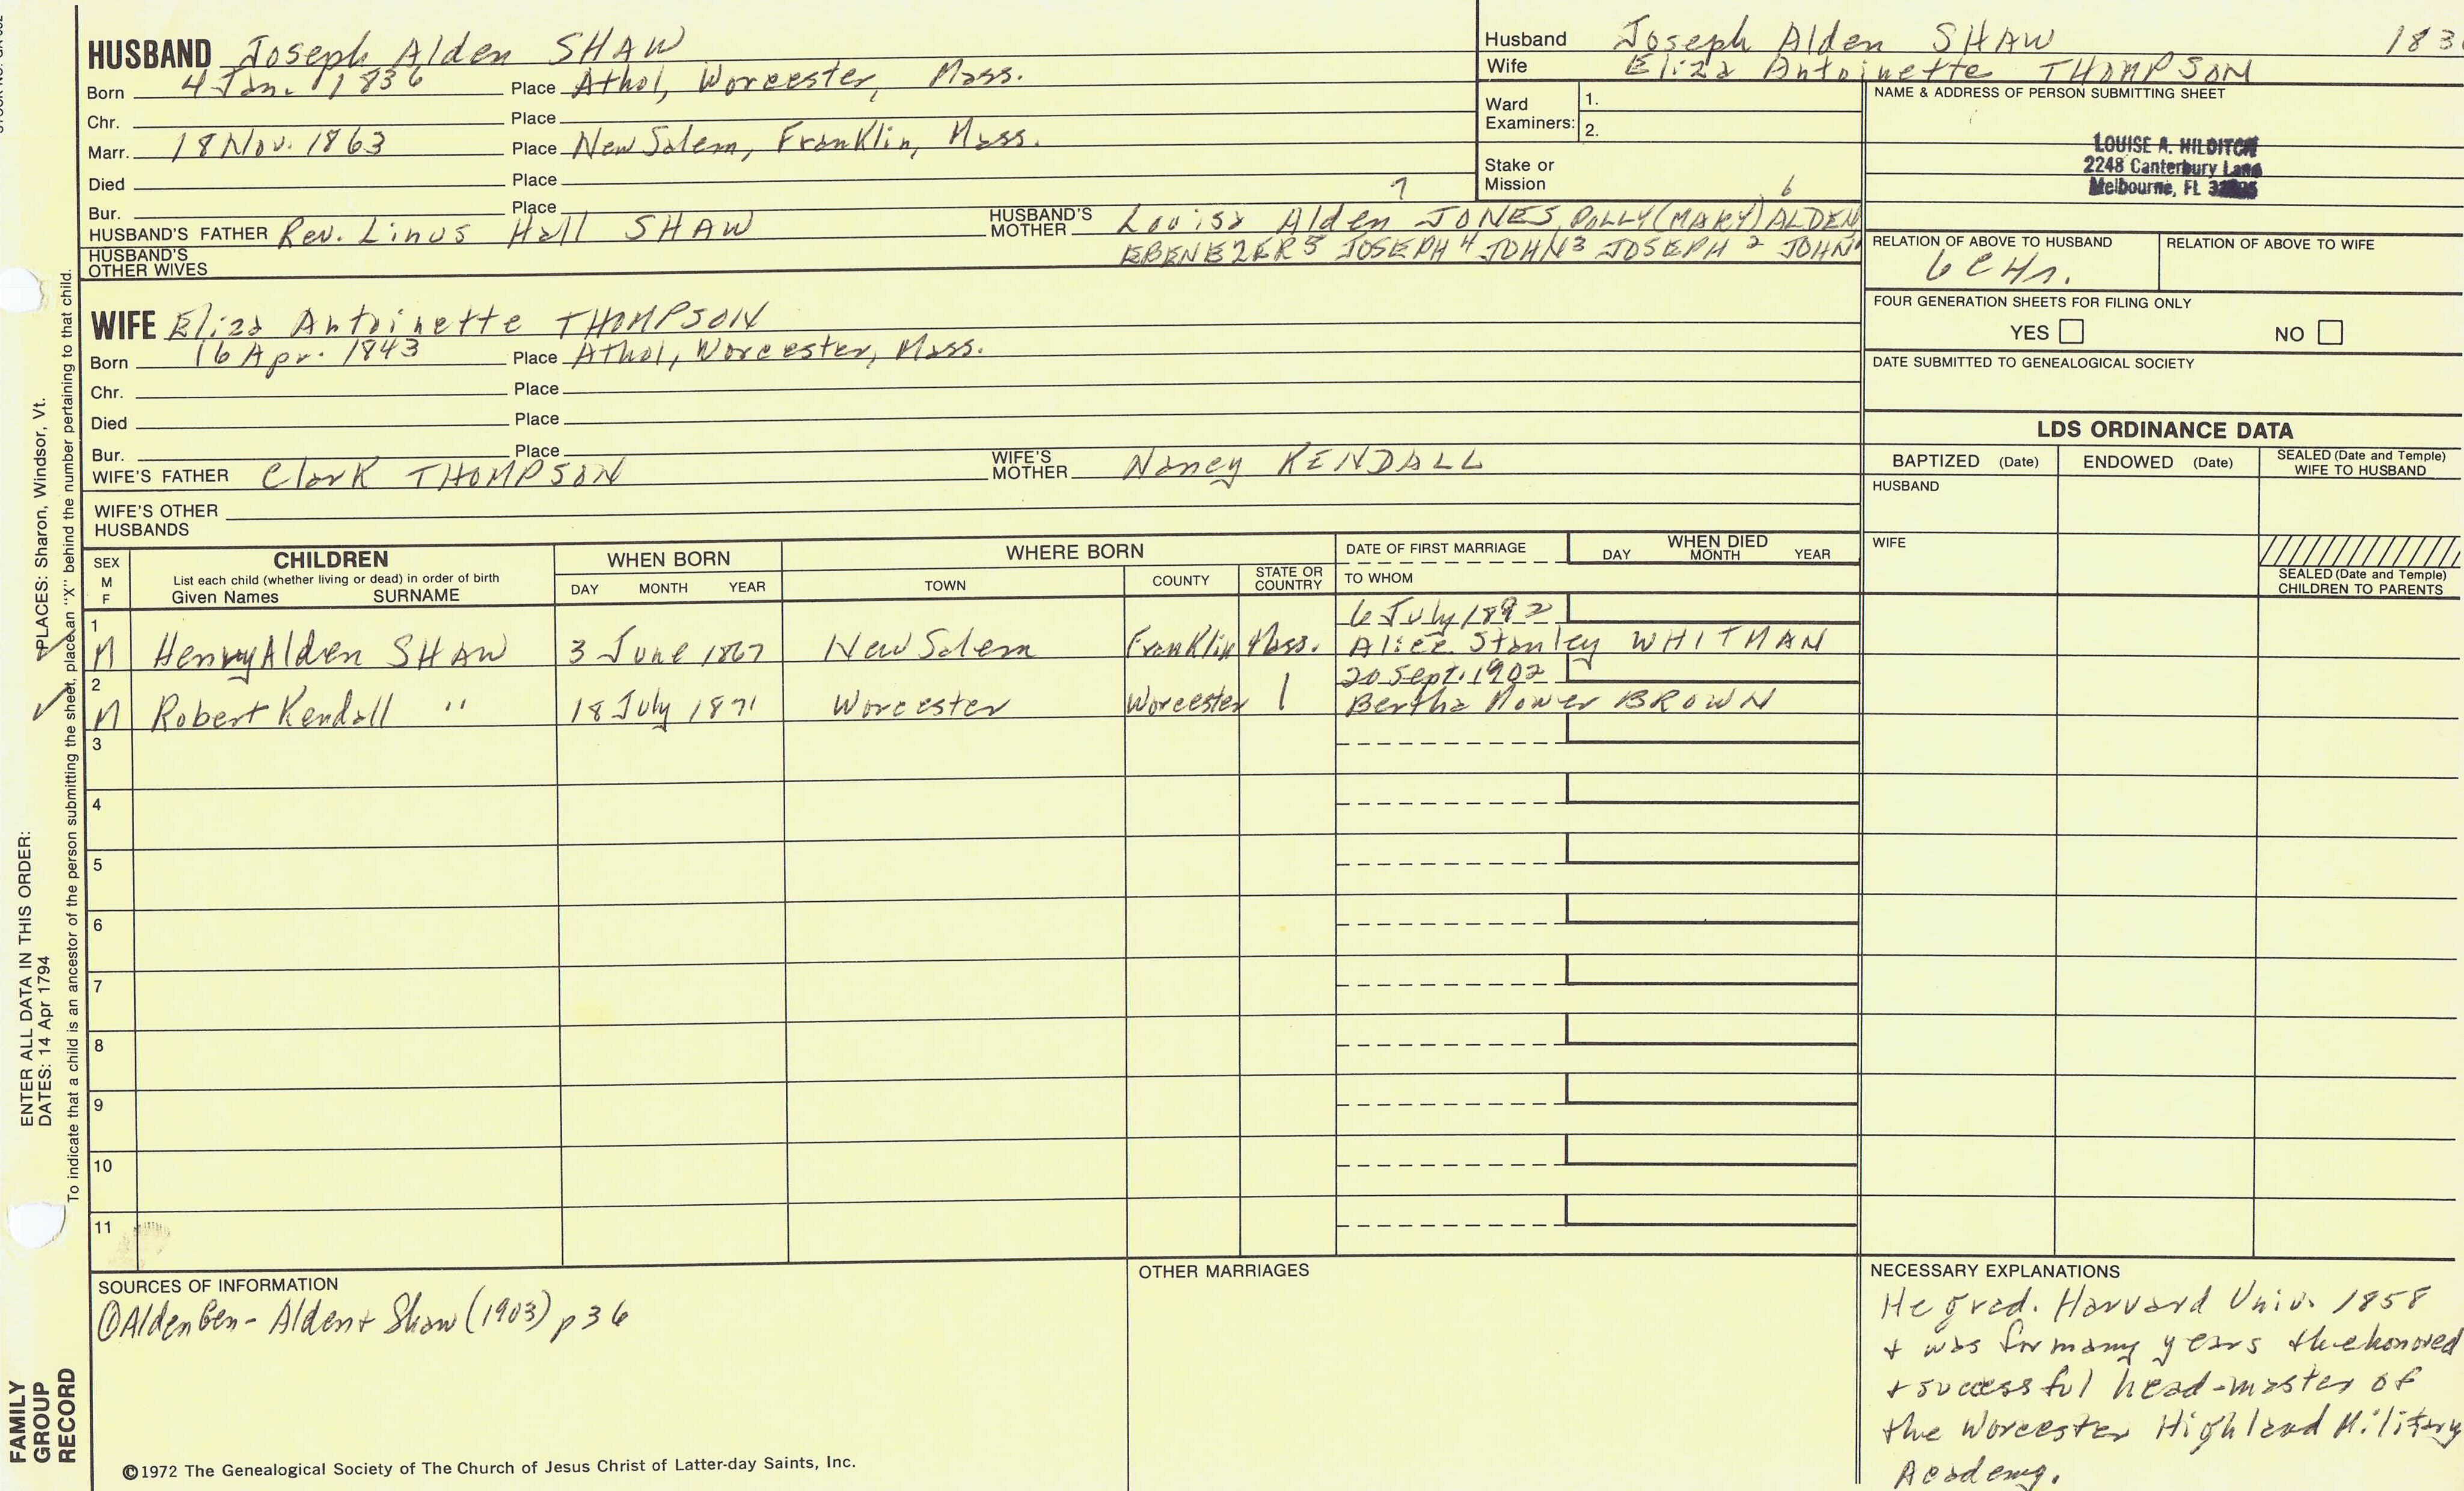 HUSBAND Joseph Alden SHAW
Born 4 Jan. 1836 Place Athol, Worcester, Mass.
Chr. Place
Marr. 18 Nov. 1863 Place New Salem, Franklin, Mass.
Died Place
Bur. Place
HUSBAND'S FATHER Rev. Linus Hall SHAW HUSBAND'S MOTHER Louisa Alden JONES, 7 POLLY (MARY) ALDEN 6
HUSBAND'S OTHER WIVES EBENEZER 5 JOSEPH 4 JOHN 3 JOSEPH 2 JOHN 1
Husband Joseph Alden SHAW 183
Wife Eliza Antoinette THOMPSON
Ward Examiners: 1.
2.
Stake or Mission
NAME & ADDRESS OF PERSON SUBMITTING SHEET
LOUISE A. HILDITCH
2248 Canterbury Lane
Melbourne, FL
RELATION OF ABOVE TO HUSBAND RELATION OF ABOVE TO WIFE
6C4r.
FOUR GENERATION SHEETS FOR FILING ONLY
YES NO
DATE SUBMITTED TO GENEALOGICAL SOCIETY
WIFE Eliza Antoinette THOMPSON
Born 16 Apr. 1843 Place Athol, Worcester, Mass.
Chr. Place
Died Place
Bur. Place
WIFE'S FATHER Clark THOMPSON WIFE'S MOTHER Nancy KENDALL
WIFE'S OTHER HUSBANDS
LDS ORDINANCE DATA
BAPTIZED (Date) ENDOWED (Date) SEALED (Date and Temple) WIFE TO HUSBAND
HUSBAND
WIFE
SEALED (Date and Temple) CHILDREN TO PARENTS
SEX M F
CHILDREN
List each child (whether living or dead) in order of birth
Given Names SURNAME
WHEN BORN
DAY MONTH YEAR
WHERE BORN
TOWN COUNTY STATE OR COUNTRY
DATE OF FIRST MARRIAGE
TO WHOM
WHEN DIED
DAY MONTH YEAR
6 July 1892
1 M Henry Alden SHAW 3 June 1867 New Salem Franklin Mass. Alice Stanley WHITMAN
20 Sept. 1902
2 M Robert Kendall " 18 July 1871 Worcester Worcester | Bertha Mower BROWN
3
4
5
6
7
8
9
10
11
SOURCES OF INFORMATION
① Alden Gen - Alden + Shaw (1903) p 36
OTHER MARRIAGES
NECESSARY EXPLANATIONS
He grad. Harvard Univ. 1858
+ was for many years the honored
+ successful head-master of
the Worcester Highland Military
Academy.
©1972 The Genealogical Society of The Church of Jesus Christ of Latter-day Saints, Inc.
FAMILY
GROUP
RECORD
ENTER ALL DATA IN THIS ORDER:
DATES: 14 Apr 1794 PLACES: Sharon, Windsor, Vt.
To indicate that a child is an ancestor of the person submitting the sheet, place an "X" behind the number pertaining to that child.